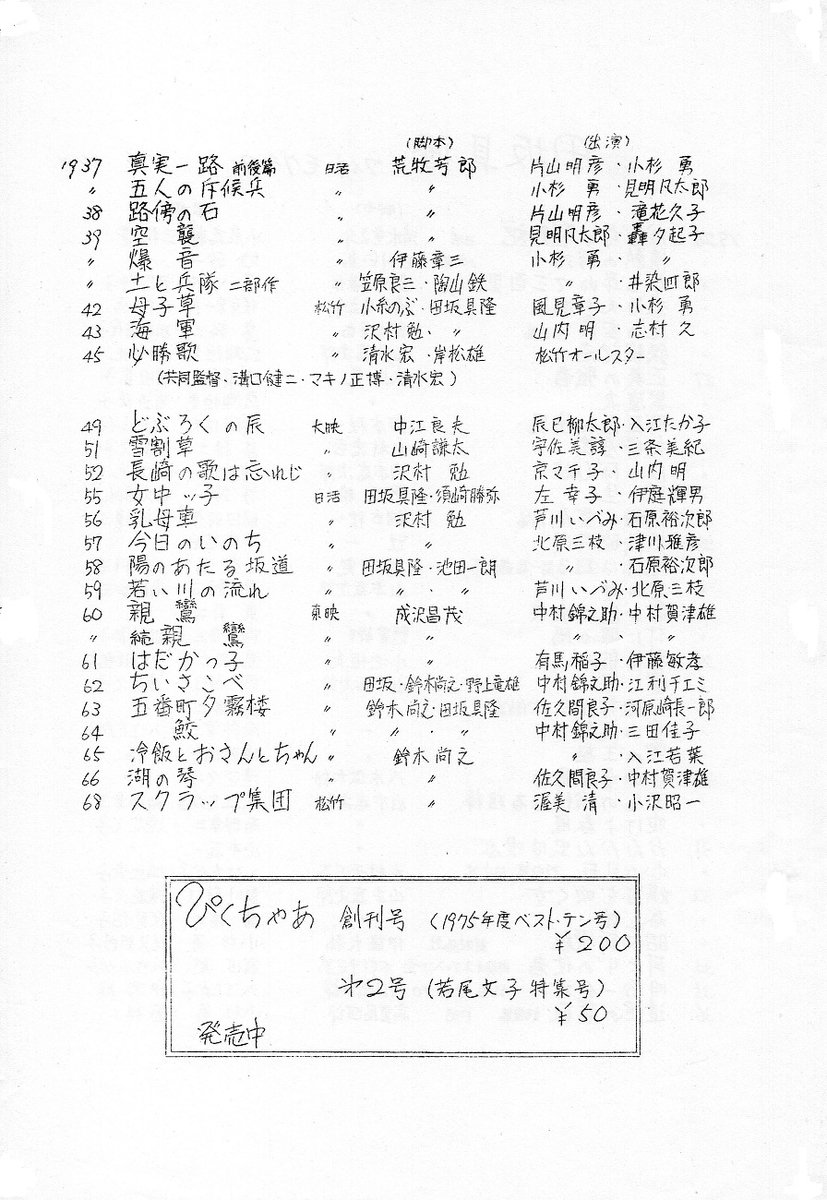 (脚本) (出演)
1937 真実一路 前後篇 日活 荒牧芳郎 片山明彦・小杉 勇
〃 五人の斥候兵 〃 〃 小杉 勇・見明凡太郎
38 路傍の石 〃 〃 片山明彦・滝花久子
39 空襲 〃 〃 見明凡太郎・轟夕起子
〃 爆音 〃 伊藤章三 小杉 勇・〃
〃 土と兵隊 二部作 〃 笠原良三・陶山鉄 〃・井染四郎
42 母子草 松竹 小糸のぶ・田坂具隆 風見章子・小杉 勇
43 海軍 〃 沢村勉・〃 山内 明・志村 久
45 必勝歌 〃 清水宏・岸松雄 松竹オールスター
(共同監督・溝口健二・マキノ正博・清水宏)
49 どぶろくの辰 大映 中江良夫 辰巳柳太郎・入江たか子
51 雪割草 〃 山崎謙太 宇佐美諄・三条美紀
52 長崎の歌は忘れじ 〃 沢村 勉 京マチ子・山内明
55 女中ッ子 日活 田坂具隆・須崎勝弥 左 幸子・伊庭輝男
56 乳母車 〃 沢村 勉 芦川いづみ・石原裕次郎
57 今日のいのち 〃 〃 北原三枝・津川雅彦
58 陽のあたる坂道 〃 田坂具隆・池田一朗 〃・石原裕次郎
59 若い川の流れ 〃 〃・〃 芦川いづみ・北原三枝
60 親鸞 東映 成沢昌茂 中村錦之助・中村賀津雄
〃 続親鸞 〃 〃 〃・〃
61 はだかっ子 〃 〃 有馬稲子・伊藤敏孝
62 ちいさこべ 〃 田坂・鈴木尚之・野上竜雄 中村錦之助・江利チエミ
63 五番町夕霧楼 〃 鈴木尚之・田坂具隆 佐久間良子・河原崎長一郎
64 鮫 〃 〃・〃 中村錦之助・三田佳子
65 冷飯とおさんとちゃん 〃 鈴木尚之 〃・入江若葉
66 湖の琴 〃 〃 佐久間良子・中村賀津雄
68 スクラップ集団 松竹 〃 渥美 清・小沢昭一
ぴくちゃあ 創刊号 (1975年度ベスト・テン号)
¥200
オ2号 (若尾文子特集号)
¥50
発売中